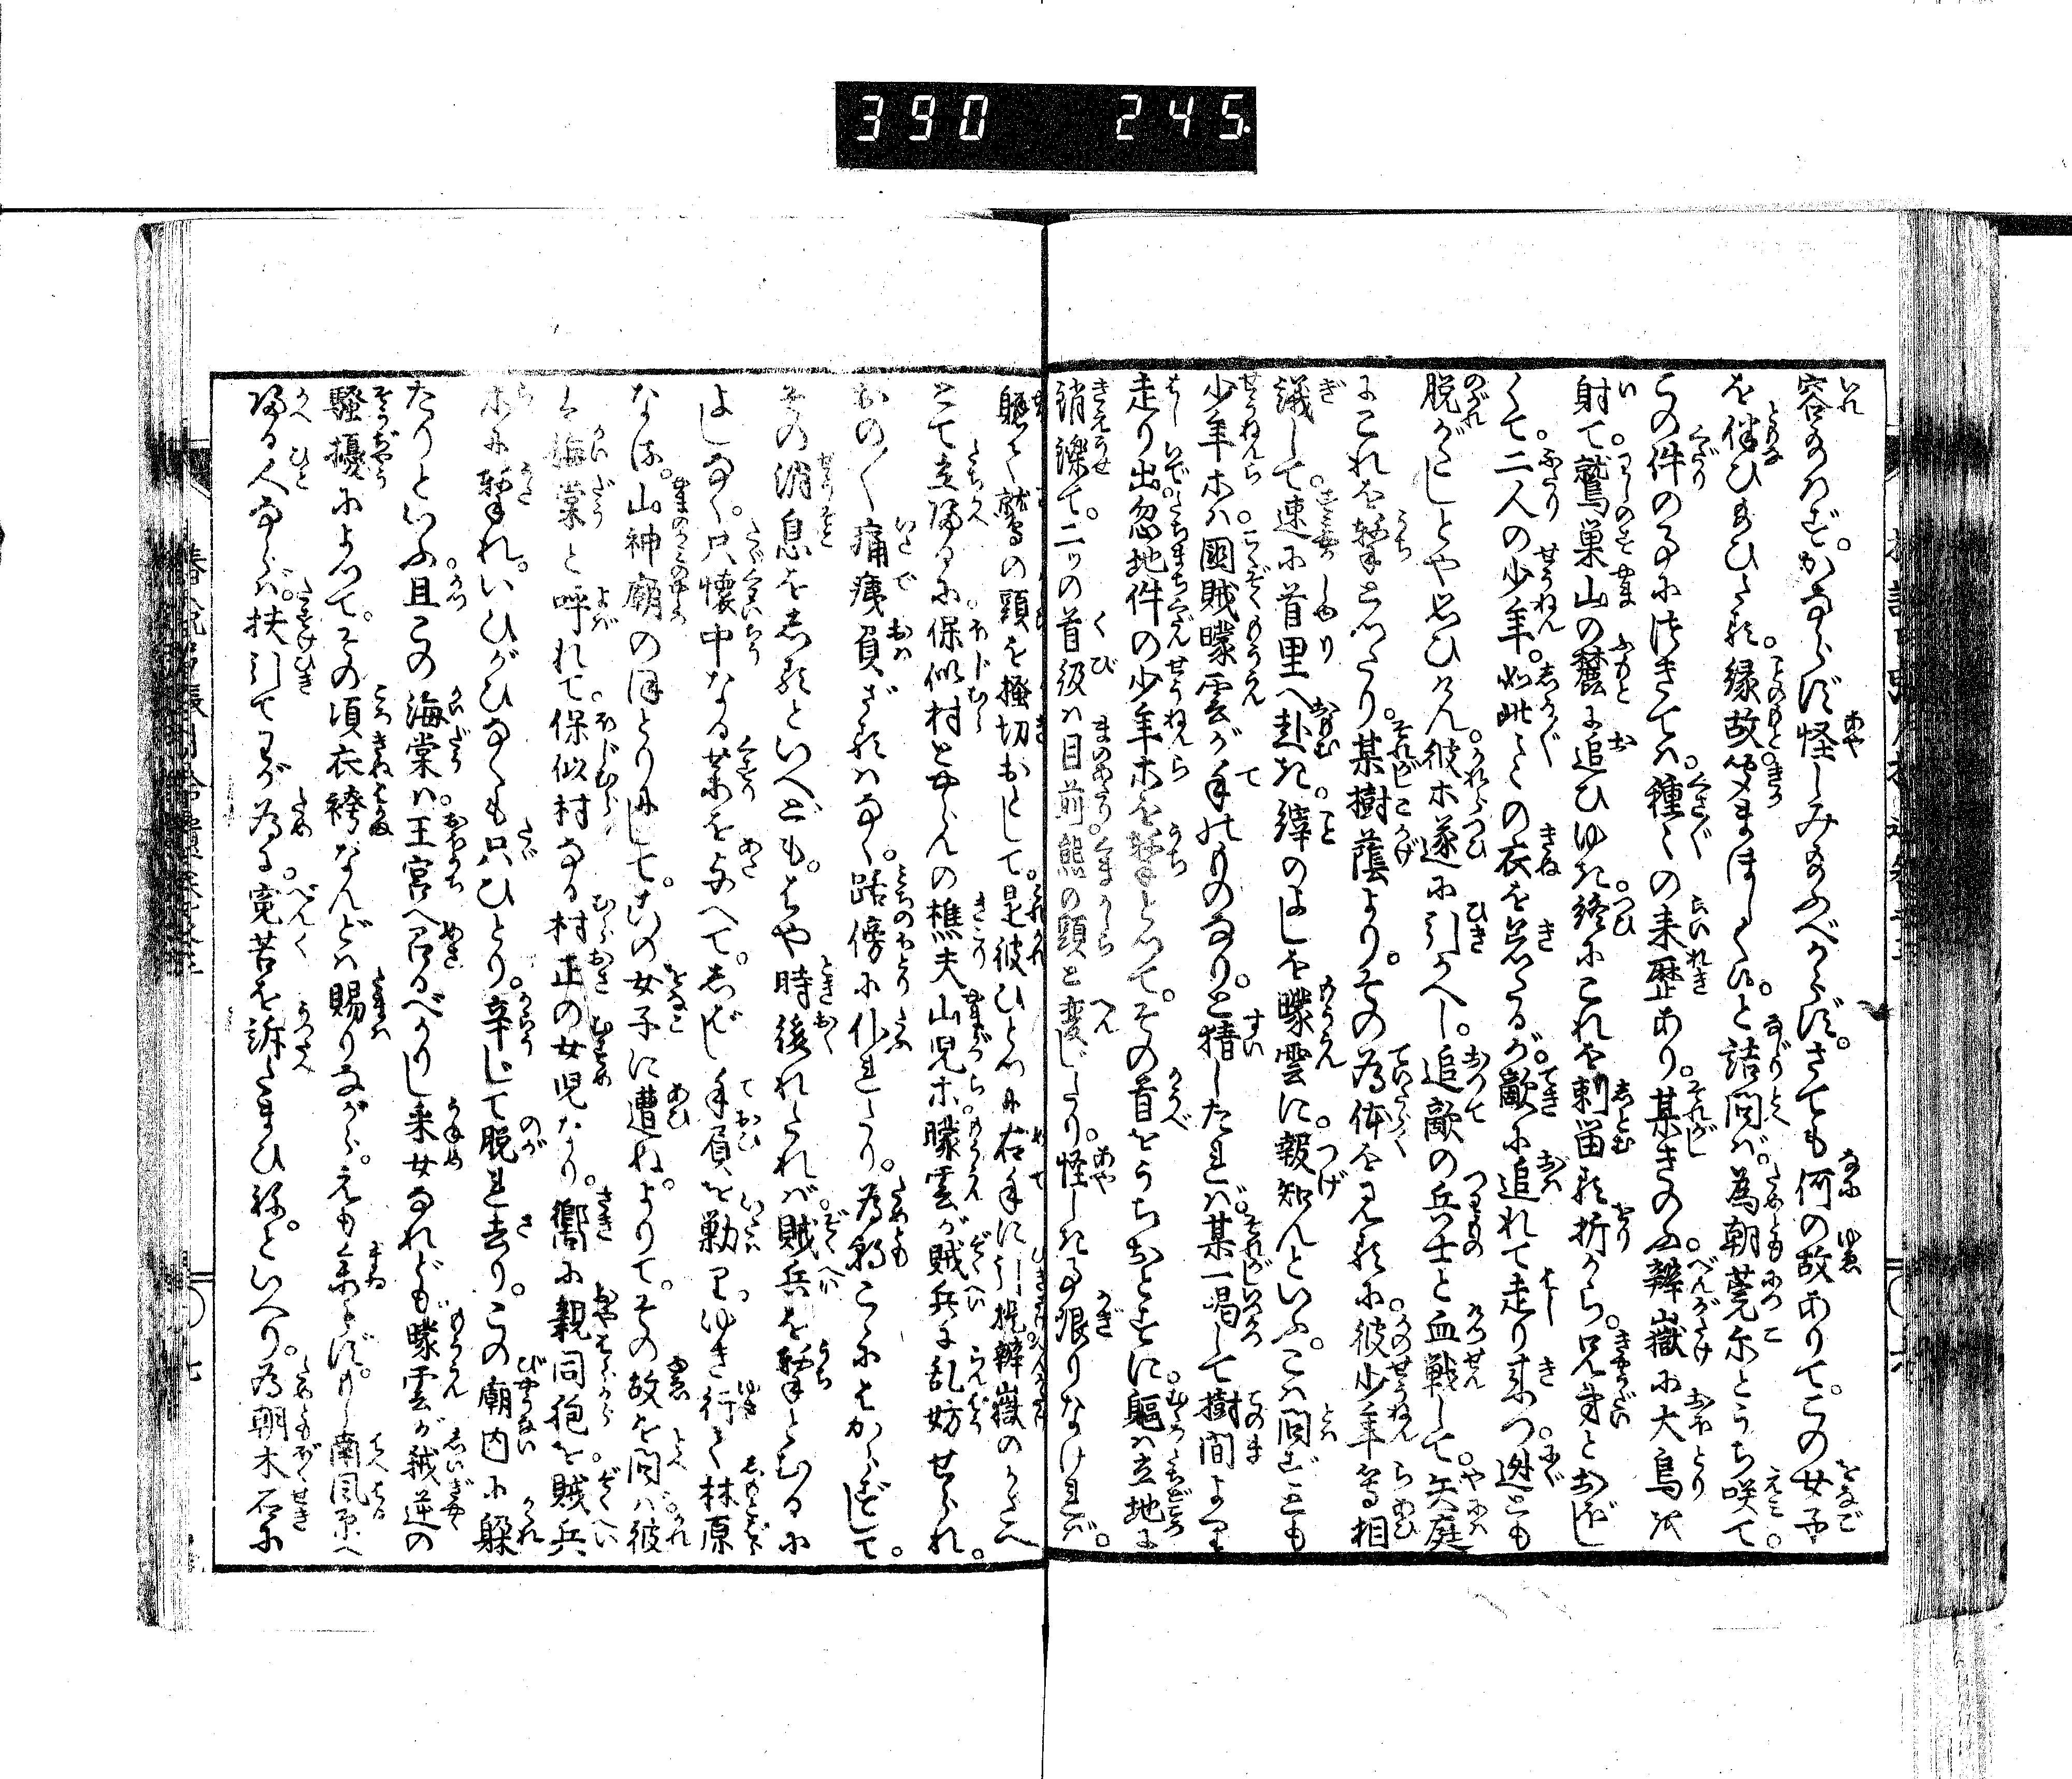 390 245
容給はずかならず怪しみ給ふべからず。さても何の故ありて。この女子
を伴ひ給ひたる。縁故聞まほしくと詰問ば。為朝莞尓とうち咲て。
この件の事にiつきては。種々の来歴あり。某きのふ辨嶽に大鳥を
射て。鷲巣山の麓に追ひゆき。終にこれを刺留る折から。兄弟とおぼし
くて。二人の少年。如此々々の衣を着たるが。敵に追れて走り来つ。迯とも
脱がたしとや思ひけん。彼ホ遂に引かへし。追敵の兵士と血戦して。矢庭
にこれを撃とつたり。某樹蔭より。その為体を見るに。彼少年等相
議して。速に首里へ赴き。縡のよしを曚雲に。報知んといふ。こは問でも
少年ホは國賊曚雲が手のものなり。と猜したれば。某一喝して樹間より
走り出。忽地件の少年ホを撃とつて。その首をうちおとすに。軀は立地に
銷鑠て。二ッの首級は目前熊の頸と変じたり。怪しき事限りなければ。
軈て鷲の頸を掻切おとして。是彼ひとつに右手に引提。辨嶽のかたへ
とて立帰るに。保似村とやらんの樵夫山児ホ。曚雲が賊兵に乱妨せられ。
おの〱痛痍負ざるはなく。路傍に仆れたり。為朝こゝにはからずして。
その消息をしるといへども。はや時後れたれば。賊兵を撃とむるに
よしなく。只懐中なる薬を与へて。しば〱手負を勦りつゝゆき行く林原
なる。山神廟のほとりにして。この女子に遭ぬ。よりて。その故を問ば。彼
は海棠と呼れて。保似村なる村正の女児なり。嚮に親同胞を賊兵
ホに撃れ。いひがひなくも只ひとり。辛じて脱れ去り。この廟内に躱
たりといふ。且この海棠は。王宮へ召るべかりし采女なれども。曚雲が弑逆の
騒擾によつて。その頃衣袴なんどは賜りながら。えも参らず。もし南風原へ
帰る人ならば。扶引てわが為に。寃苦を訴たまひねといへり。為朝木石に